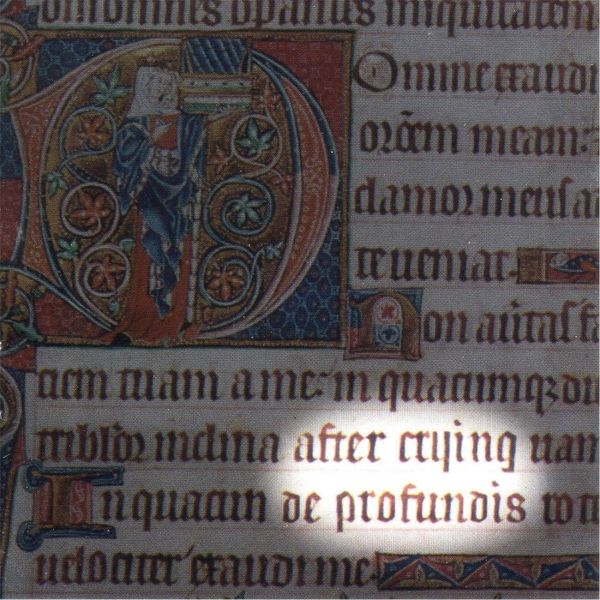 iniquitatem
Omine exaudi
orōem meam:
clamor meus a
te ueniat.
Non au̅tas fa
ciem tuam a me: in quacumqꝫ di
tribl'or inclina after crying uam
In quacun de profundis
uelociter exaudi me